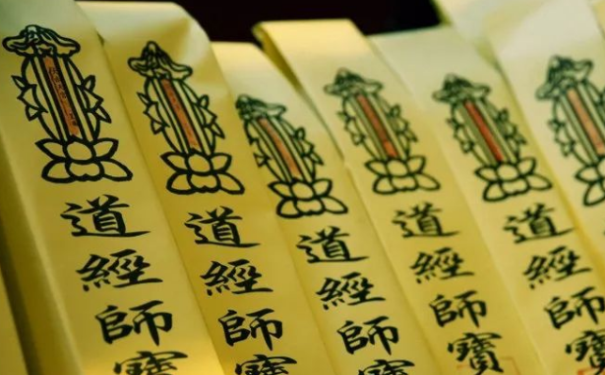 道經師寶
道經師寶
道經師寶
道經師寶
道經師
道經師寶